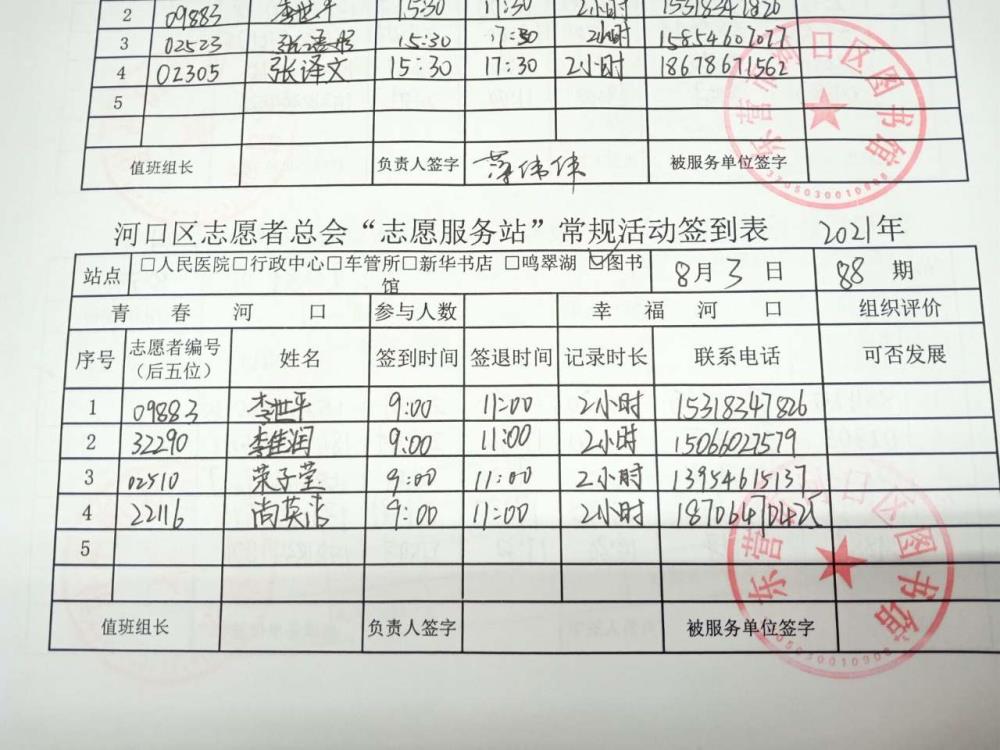 2 09883 李世平 15:30 17:30 2小时 15318347826
3 02523 15:30 17:30 2小时 15854607077
4 02305 张译文 15:30 17:30 2小时 18678671562
5
值班组长 负责人签字 薄伟伟 被服务单位签字
东营市河口区图书馆
3705030010908
河口区志愿者总会“志愿服务站”常规活动签到表 2021年
站点 □人民医院□行政中心□车管所□新华书店 □鸣翠湖 ☑图书馆 8月3日 88期
青春河口 参与人数 幸福河口 组织评价
序号 志愿者编号（后五位） 姓名 签到时间 签退时间 记录时长 联系电话 可否发展
1 09883 李世平 9:00 11:00 2小时 15318347826
2 32290 李佳润 9:00 11:00 2小时 15066027579
3 02510 荣子莹 9:00 11:00 2小时 13954615137
4 22116 尚英洁 9:00 11:00 2小时
5
值班组长 负责人签字 被服务单位签字
东营市河口区图书馆
3705030010908